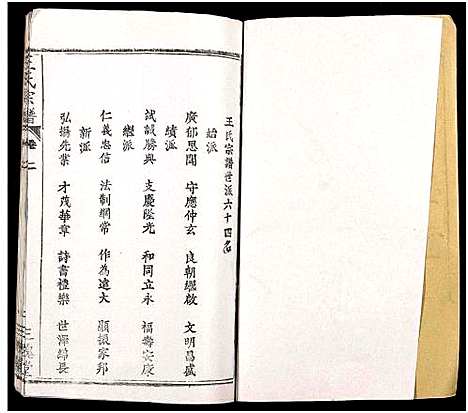 王氏宗譜世派六十四名
始派
廣郁恩聞 守應仲玄 良朝繼啟 文明昌盛
績派
試誠勝興 支慶陞光 和同立永 福壽安康
繼派
仁義忠信 法制綱常 作為遠大 顯振家邦
新派
弘揚先業 才茂華章 詩書禮樂 世澤綿長
王氏宗譜
卷二
三槐堂